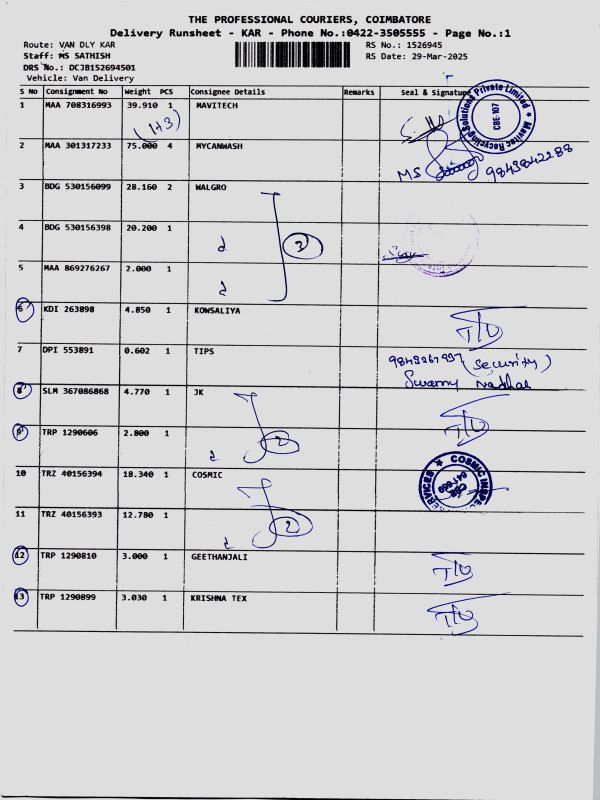 THE PROFESSIONAL COURIERS, COIMBATORE
Delivery Runsheet - KAR - Phone No.:0422-3505555 - Page No.:1
Route: VAN DLY KAR RS No.: 1526945
Staff: MS SATHISH RS Date: 29-Mar-2025
DRS No.: DCJB152694501
Vehicle: Van Delivery
S No Consignment No Weight PCS Consignee Details Remarks Seal & Signature
1 MAA 708316993 39.910 1 MAVITECH
(1+3)
Mavitec Recycling Solutions Private Limited ★ CBE-107
2 MAA 301317233 75.000 4 MYCANWASH
MS 9843842288
3 BDG 530156099 28.160 2 WALGRO
4 BDG 530156398 20.200 1
3
5 MAA 869276267 2.000 1
6 KDI 263898 4.850 1 KOWSALIYA
7 DPI 553891 0.602 1 TIPS
(Security)
Swamy
8 SLM 367086868 4.770 1 JK
9 TRP 1290606 2.800 1
2
10 TRZ 40156394 18.340 1 COSMIC
COSMIC INSPE SERVICES ★ CBE 641 669
11 TRZ 40156393 12.780 1
2
12 TRP 1290810 3.000 1 GEETHANJALI
13 TRP 1290899 3.030 1 KRISHNA TEX